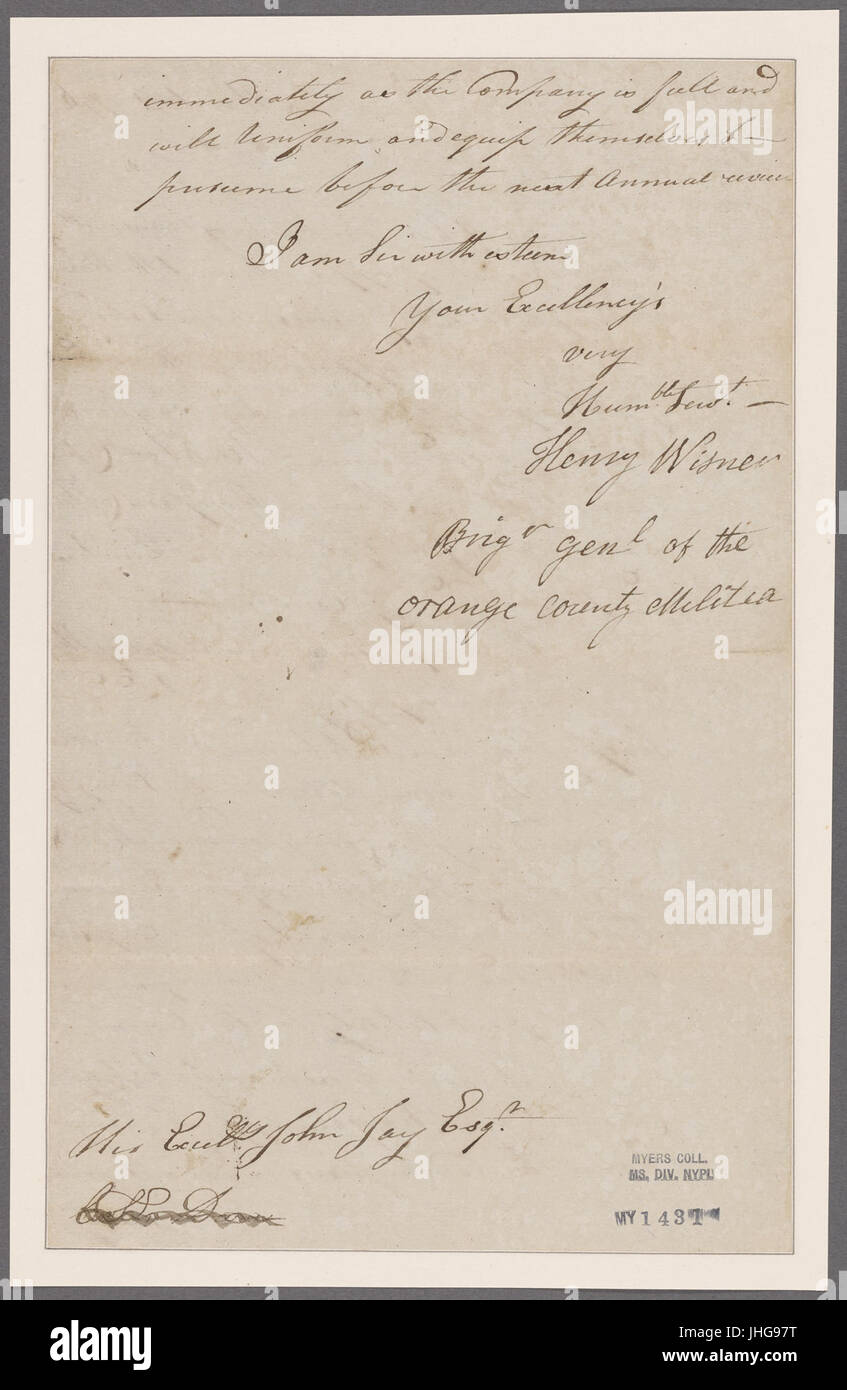 immediately as the Company is full and
will Uniform and equip themselves I —
presume before the next Annual review
I am Sir with esteem
Your Excellency's
very
Humble Servt —
Henry Wisner
Brigr genl of the
orange County Militia
His Excellcy John Jay Esqr
MYERS COLL.
MS. DIV. NYPL
MY1431
alamy
a
Image ID: JHG97T
www.alamy.com